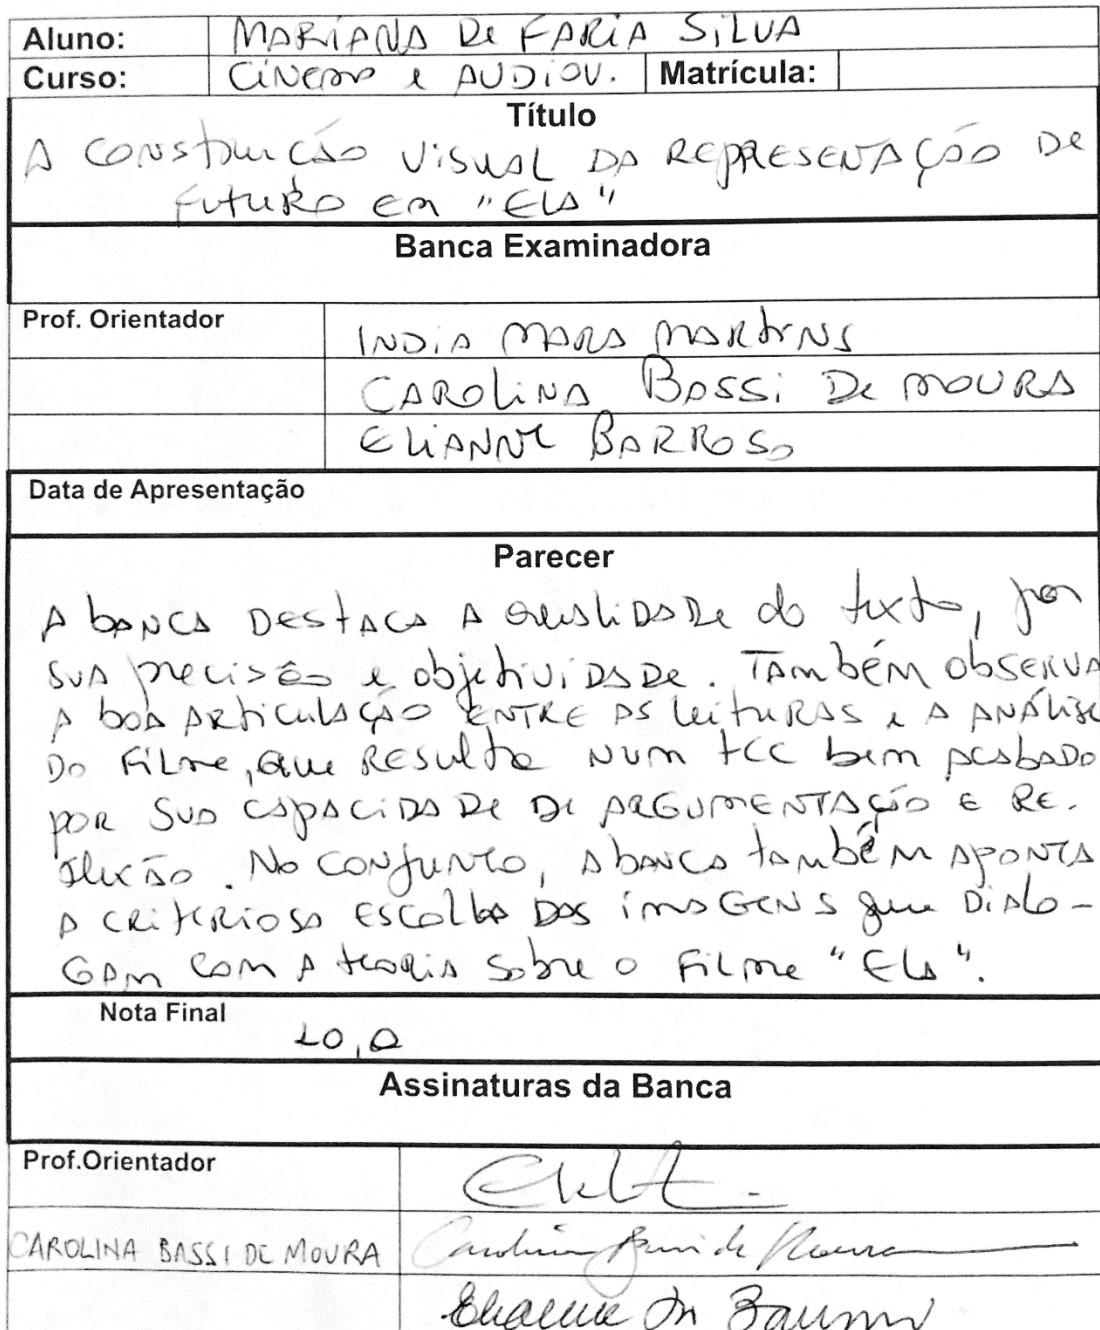 Aluno: MARIANA De FARIA SILVA
Curso: CINEMA e AUDIOV. Matrícula:
Título
A CONSTRUÇÃO VISUAL DA REPRESENTAÇÃO DE
FUTURO EM "ELA"
Banca Examinadora
Prof. Orientador INDIA MARA MARTINS
CAROLINA BASSI De MOURA
ELIANNE BARROSO
Data de Apresentação
Parecer
A bANCA DESTACA A QUALIDADE do texto, por
SUA precisão e objetividade. TAMbÉM ObSERVA
A bOA ARTICULAÇÃO ENTRE AS leituRAS e A ANÁLISE
DO FILME, que RESULTA NUM TCC bem ACAbADO
POR SUA CAPACIDADE DE ARGUMENTAÇÃO E RE-
flexão. NO CONJUNTO, A bANCA tAMbÉM APONTA
A CRITERIOSA ESCOLHA DAS imAGENS que DIALO-
GAM COM A teoria sobre o FILME "ELA".
Nota Final
10,0
Assinaturas da Banca
Prof.Orientador
CAROLINA BASSI DE MOURA Carolina Bassi de Moura